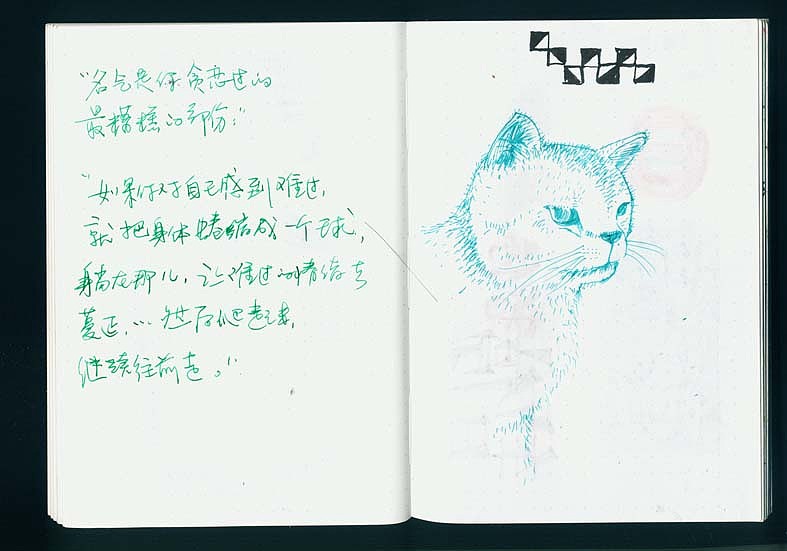 “名气是你贪恋过的
最模糊的部份。”
“如果你对自己感到难过，
就把身体蜷缩成一个球，
躺在那儿，让难过的情绪去
蔓延，... 然后爬起来，
继续往前走。”